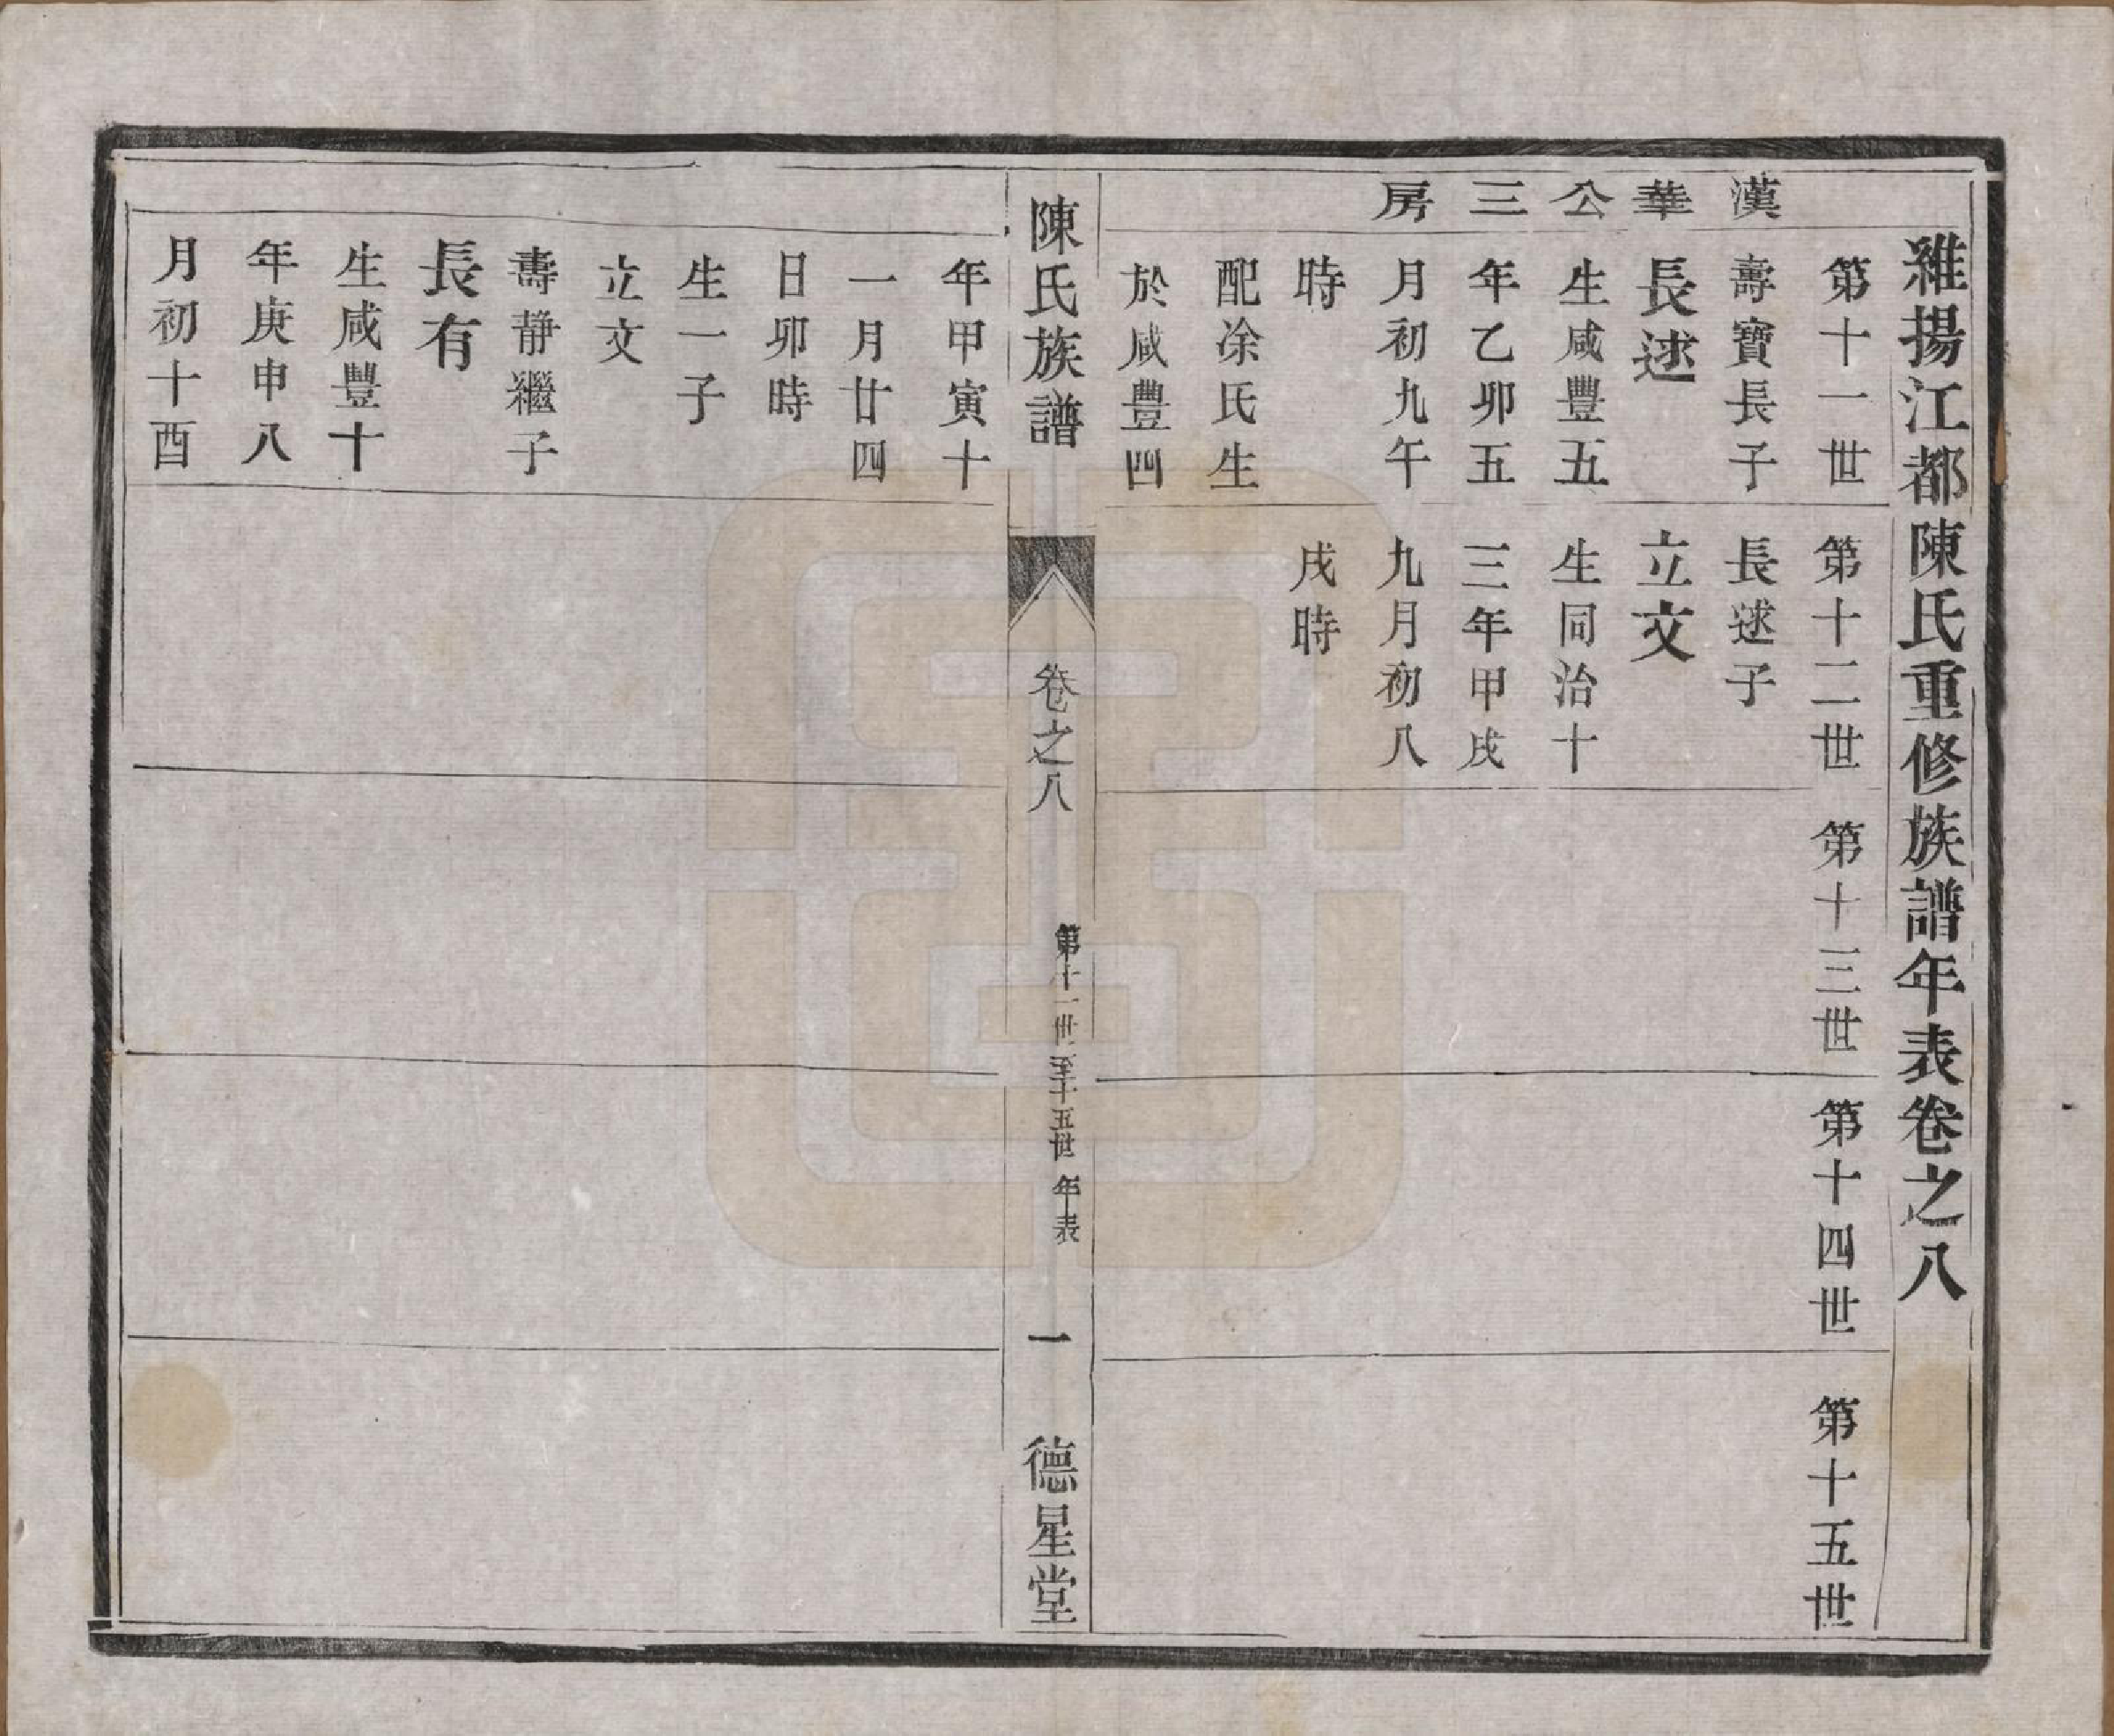 維揚江都陳氏重修族譜年表卷之八
漢華公三房
第十一世
壽寶長子
長逑
生咸豐五
年乙卯五
月初九午
時
配涂氏生
於咸豐四
第十二世
長逑子
立文
生同治十
三年甲戌
九月初八
戌時
第十三世
第十四世
第十五世
陳氏族譜
卷之八
第十一世至十五世年表
一
德星堂
年甲寅十
一月廿四
日卯時
生一子
立文
壽靜繼子
長有
生咸豐十
年庚申八
月初十酉